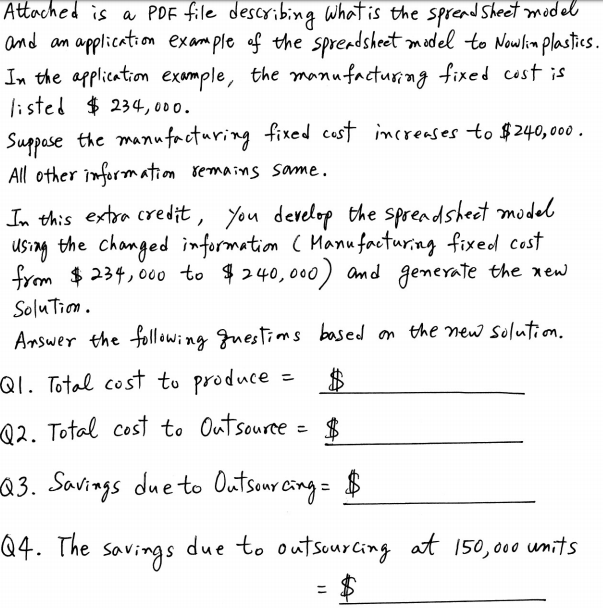 Attached is a PDF file describing what is the spreadsheet model
and an application example of the spreadsheet model to Nowlin plastics.
In the application example, the manufacturing fixed cost is
listed $ 234,000.
Suppose the manufacturing fixed cost increases to $240,000.
All other information remains same.
In this extra credit, you develop the spreadsheet model
using the changed information (Manufacturing fixed cost
from $ 234,000 to $ 240,000) and generate the new
Solution.
Answer the following questions based on the new solution.
Q1. Total cost to produce = $
Q2. Total cost to Outsource = $
Q3. Savings due to Outsourcing = $
Q4. The savings due to outsourcing at 150,000 units
= $